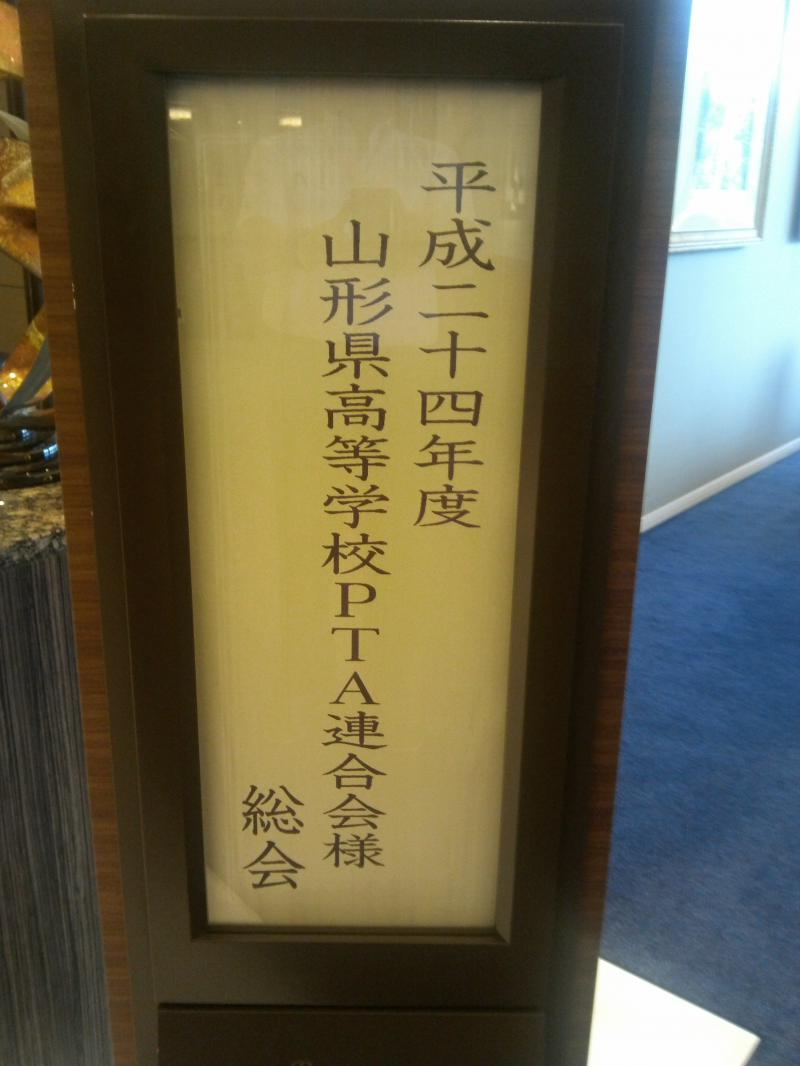 平成二十四年度
山形県高等学校PTA連合会様
総会